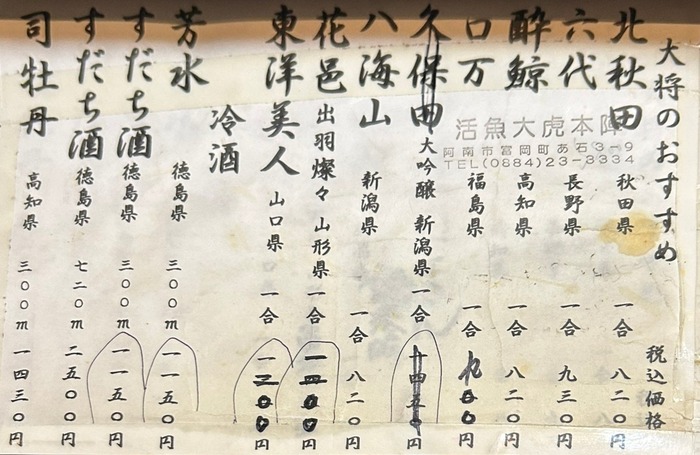 大将のおすすめ 税込価格
北秋田 秋田県 一合 八二〇円
六代 長野県 一合 九三〇円
酔鯨 高知県 一合 八二〇円
ロ万 福島県 一合 九〇〇円
久保田 大吟醸 新潟県 一合 一四五〇円
八海山 新潟県 一合 八二〇円
花邑 出羽燦々 山形県 一合 円
東洋美人 山口県 一合 円
冷酒
芳水 徳島県 三〇〇m 一一五〇円
すだち酒 徳島県 三〇〇m 一一五〇円
すだち酒 徳島県 七二〇m 二五〇〇円
司牡丹 高知県 三〇〇m 一四三〇円
活魚大虎本陣
阿南市富岡町あ石3-9
TEL(0884)23-3334